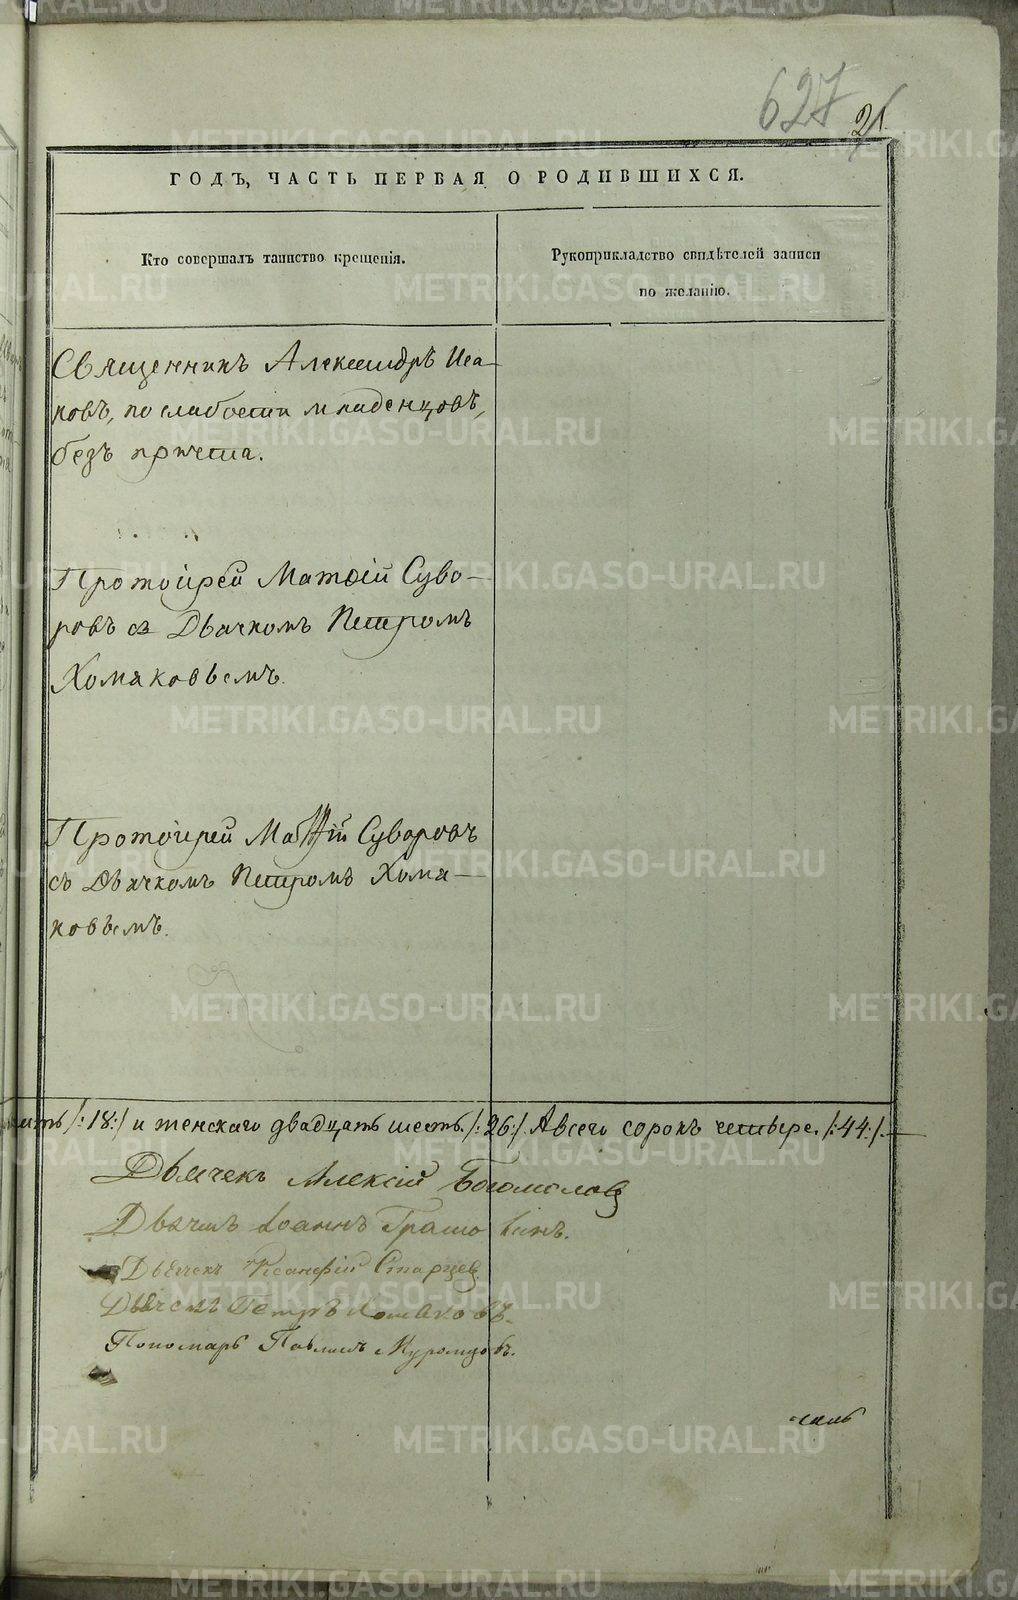 627
21.
ГОДЪ, ЧАСТЬ ПЕРВАЯ О РОДИВШИХСЯ.
Кто совершалъ таинство крещенія.
Рукоприкладство свидѣтелей записи
по желанію.
Священникъ Александръ Иса-
ковъ, по слабости младенцовъ,
безъ причта.
Протоіерей Матѳій Суво-
ровъ съ Дьячкомъ Петромъ
Хомяковымъ.
Протоіерей Матѳій Суворовъ
съ Дьячкомъ Петромъ Хомя-
ковымъ.
/:18:/ и женскаго двадцать шесть /:26:/ А всего сорокъ четыре. /:44:/.
Дьячекъ Алексій Богомолов
Дьячекъ Іоаннъ
Дьячекъ Старцев
Дьячекъ Петръ Хомяковъ.
Пономарь Павелъ Муромцовъ.
METRIKI.GASO-URAL.RU